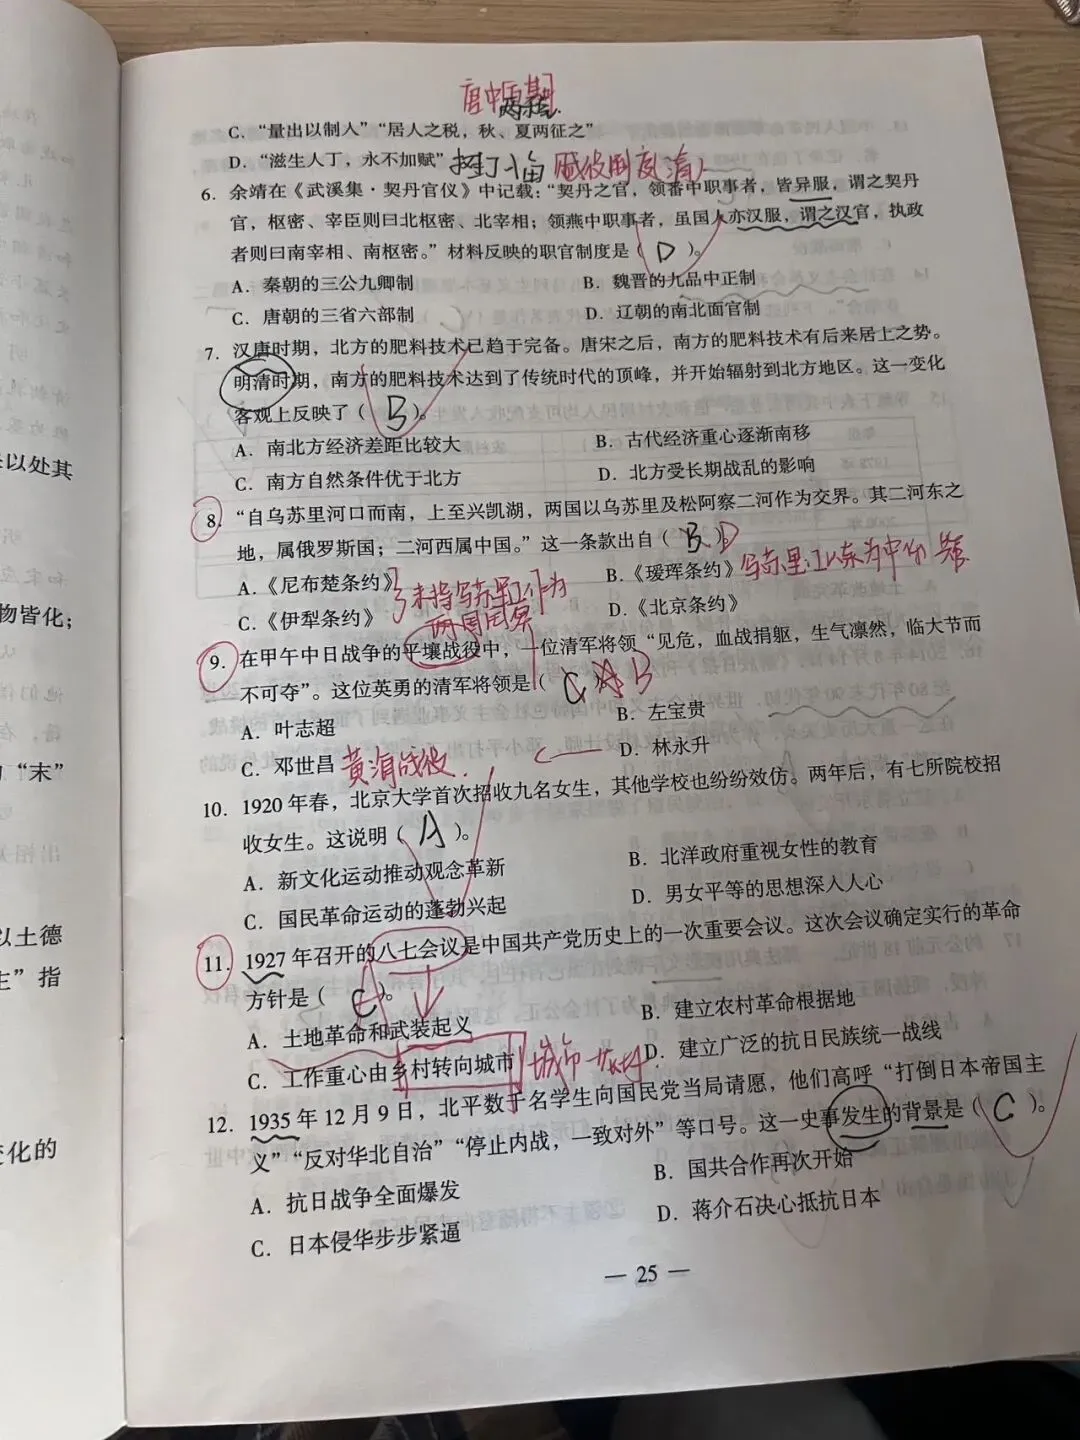 唐中后期
两税法
C. “量出以制入”“居人之税，秋、夏两征之”
D. “滋生人丁，永不加赋” 摊丁入亩 赋役制度 清
6. 余靖在《武溪集·契丹官仪》中记载：“契丹之官，领番中职事者，皆异服，谓之契丹
官，枢密、宰臣则曰北枢密、北宰相；领燕中职事者，虽国人亦汉服，谓之汉官，执政
者则曰南宰相、南枢密。”材料反映的职官制度是（ D ）。
A. 秦朝的三公九卿制
B. 魏晋的九品中正制
C. 唐朝的三省六部制
D. 辽朝的南北面官制
7. 汉唐时期，北方的肥料技术已趋于完备。唐宋之后，南方的肥料技术有后来居上之势。
明清时期，南方的肥料技术达到了传统时代的顶峰，并开始辐射到北方地区。这一变化
客观上反映了（ B ）。
A. 南北方经济差距比较大
B. 古代经济重心逐渐南移
C. 南方自然条件优于北方
D. 北方受长期战乱的影响
8. “自乌苏里河口而南，上至兴凯湖，两国以乌苏里及松阿察二河作为交界。其二河东之
地，属俄罗斯国；二河西属中国。”这一条款出自（ B ）。D
A.《尼布楚条约》
B.《瑷珲条约》乌苏里江以东为中俄共管
C.《伊犁条约》
未将乌苏里江作为
两国国界
D.《北京条约》
9. 在甲午中日战争的平壤战役中，一位清军将领“见危，血战捐躯，生气凛然，临大节而
不可夺”。这位英勇的清军将领是（ C ）。A B
A. 叶志超
B. 左宝贵
C. 邓世昌 黄海战役.
D. 林永升
10. 1920 年春，北京大学首次招收九名女生，其他学校也纷纷效仿。两年后，有七所院校招
收女生。这说明（ A ）。
A. 新文化运动推动观念革新
B. 北洋政府重视女性的教育
C. 国民革命运动的蓬勃兴起
D. 男女平等的思想深入人心
11. 1927 年召开的八七会议是中国共产党历史上的一次重要会议。这次会议确定实行的革命
方针是（ C ）。A
A. 土地革命和武装起义
B. 建立农村革命根据地
C. 工作重心由乡村转向城市 城市→农村
D. 建立广泛的抗日民族统一战线
12. 1935 年 12 月 9 日，北平数千名学生向国民党当局请愿，他们高呼“打倒日本帝国主
义”“反对华北自治”“停止内战，一致对外”等口号。这一史事发生的背景是（ C ）。
A. 抗日战争全面爆发
B. 国共合作再次开始
C. 日本侵华步步紧逼
D. 蒋介石决心抵抗日本
— 25 —
以处其
物皆化；
“末”
以土德
”指
变化的